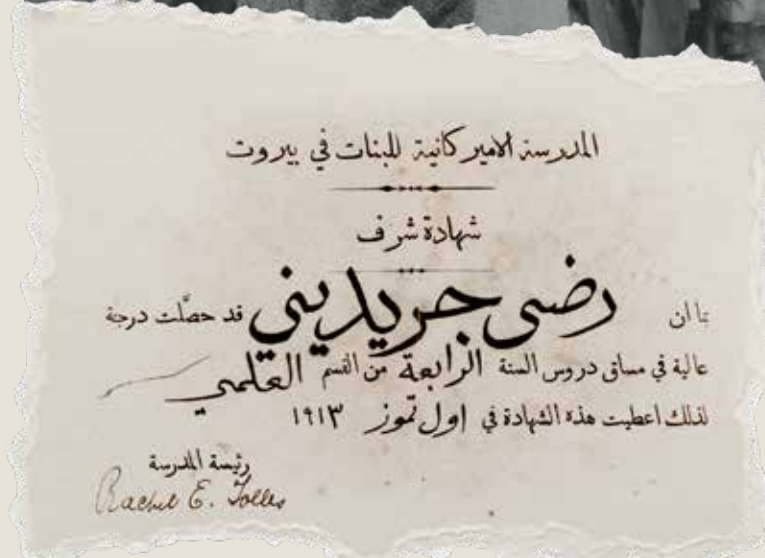 المدرسة الاميركانية للبنات في بيروت
شهادة شرف
بما ان رضى جريديني قد حصلت درجة
عالية في مساق دروس السنة الرابعة من القسم العلمي
لذلك اعطيت هذه الشهادة في اول تموز ١٩١٣
رئيسة المدرسة
Rachel E. Tolles